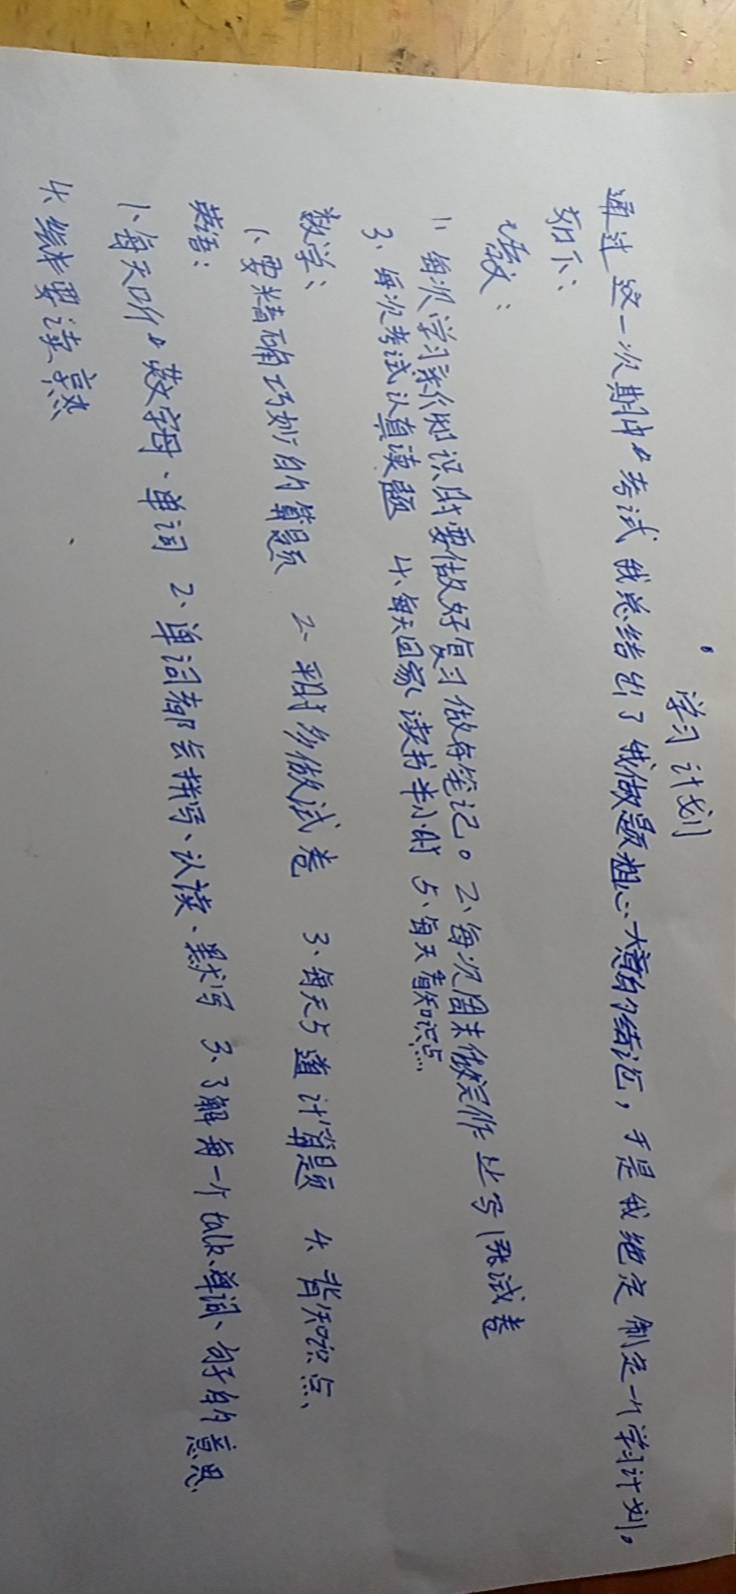 学习计划
通过这一次期中考试我总结出了我做题粗心大意的结论，于是我绝定制定一个学习计划。
如下：
语文：
1、每次学习新的知识时要做好复习做好笔记。2、每次周末做完作业写1张试卷
3、每次考试认真读题 4、每天回家读书半小时 5、每天看知识点
数学：
1、要精确巧妙的算题 2、平时多做试卷 3、每天5道计算题 4、背知识点、
英语：
1、每天听 字母、单词 2、单词都会拼写、认读、默写 3、了解每一个talk、单词、句子的意思.
4、 要读熟